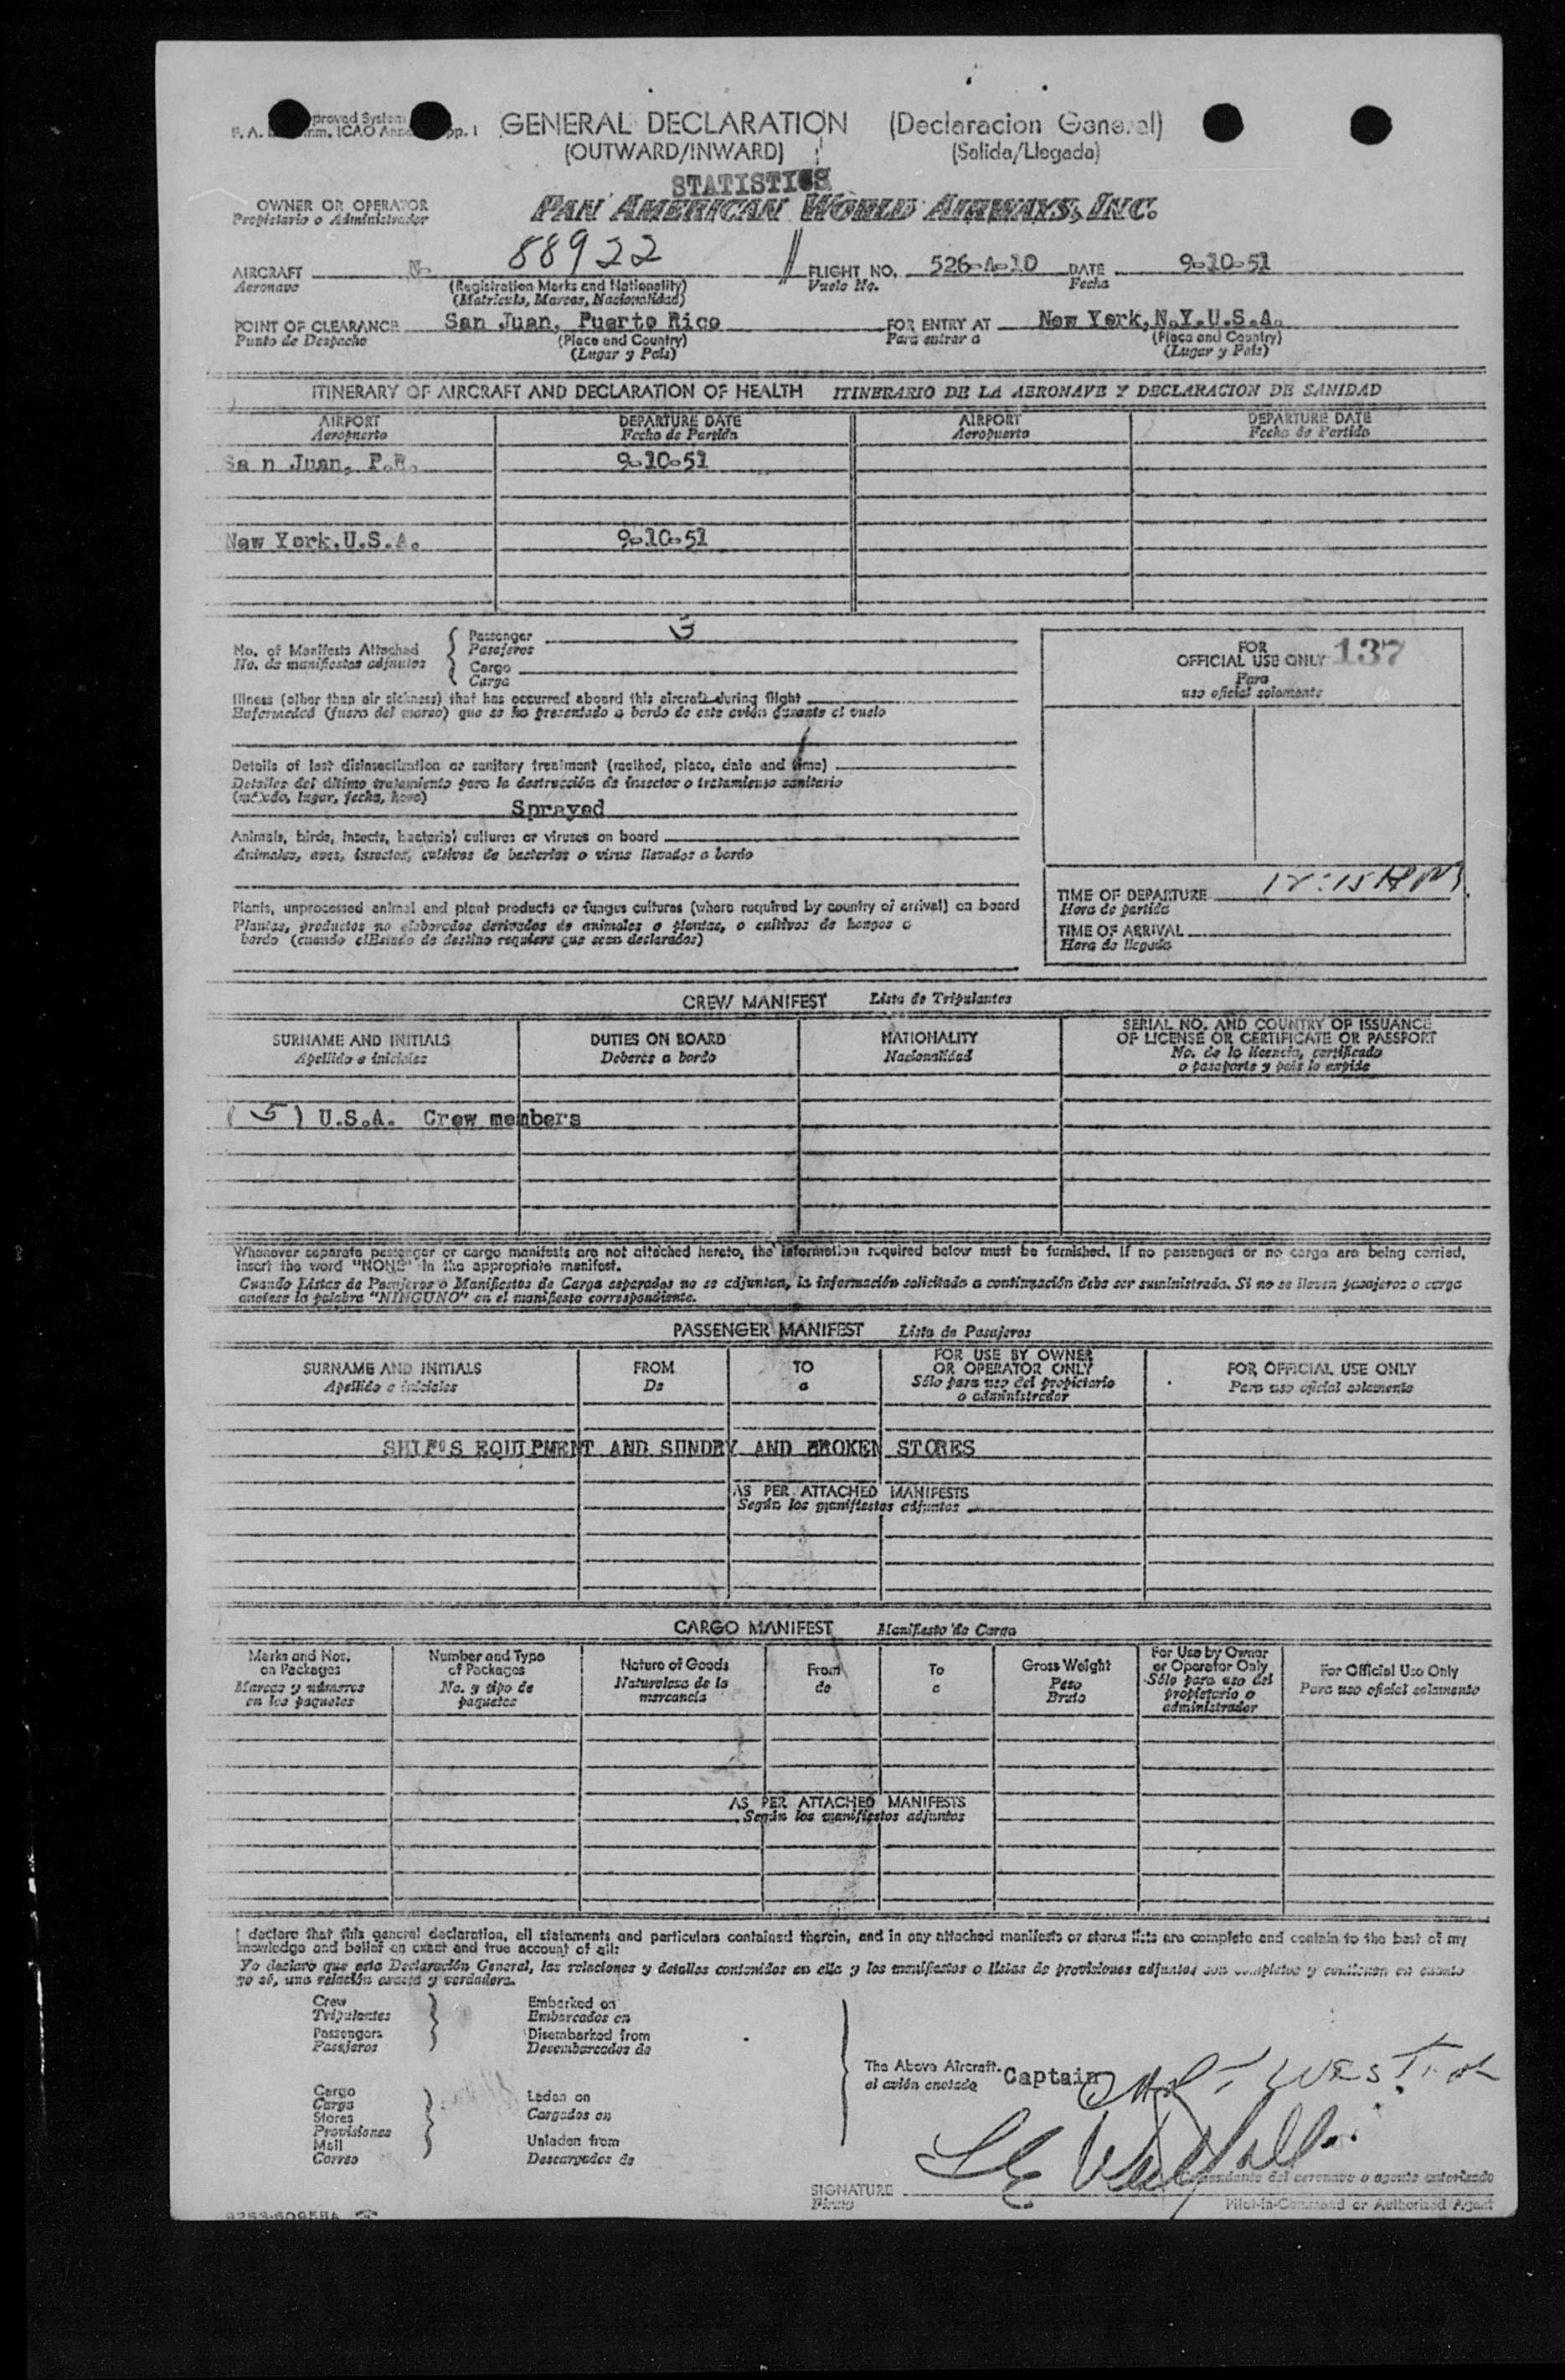 GENERAL DECLARATION (Declaracion General)
(OUTWARD/INWARD) (Salida/Llegada)
STATISTICS
OWNER OR OPERATOR
Propietario o Administrador
PAN AMERICAN WORLD AIRWAYS, INC.
AIRCRAFT N- 88922 FLIGHT NO. 526-A-10 DATE 9-10-51
Aeronave (Registration Marks and Nationality) Vuelo No. Fecha
(Matricula, Marcas, Nacionalidad)
POINT OF CLEARANCE San Juan, Puerto Rico FOR ENTRY AT New York, N.Y. U.S.A.
Punto de Despacho (Place and Country) Para entrar a (Place and Country)
(Lugar y País) (Lugar y País)
ITINERARY OF AIRCRAFT AND DECLARATION OF HEALTH ITINERARIO DE LA AERONAVE Y DECLARACION DE SANIDAD
AIRPORT DEPARTURE DATE AIRPORT DEPARTURE DATE
Aeropuerto Fecha de Partida Aeropuerto Fecha de Partida
Sa n Juan, P.R. 9-10-51
New York.U.S.A. 9-10-51
No. of Manifests Attached
No. de manifiestos adjuntos
Passenger
Pasajeros
Cargo
Carga
FOR
OFFICIAL USE ONLY 137
Para
uso oficial solamente
Illness (other than air sickness) that has occurred aboard this aircraft during flight
Enfermedad (fuera del mareo) que se ha presentado a bordo de este avión durante el vuelo
Details of last disinsectization or sanitary treatment (method, place, date and time)
Detalles del último tratamiento para la destrucción de insectos o tratamiento sanitario
(método, lugar, fecha, hora)
Sprayed
Animals, birds, insects, bacterial cultures or viruses on board
Animales, aves, insectos, cultivos de bacterias o virus llevados a bordo
Plants, unprocessed animal and plant products or fungus cultures (where required by country of arrival) on board
Plantas, productos no elaborados derivados de animales o plantas, o cultivos de hongos a
bordo (cuando elEstado de destino requiera que sean declarados)
TIME OF DEPARTURE
Hora de partida
TIME OF ARRIVAL
Hora de llegada
CREW MANIFEST Lista de Tripulantes
SURNAME AND INITIALS DUTIES ON BOARD NATIONALITY SERIAL NO. AND COUNTRY OF ISSUANCE
OF LICENSE OR CERTIFICATE OR PASSPORT
Apellido e iniciales Deberes a bordo Nacionalidad No. de la licencia, certificado
o pasaporte y país lo expide
( 5 ) U.S.A. Crew members
Whenever separate passenger or cargo manifests are not attached hereto, the information required below must be furnished. If no passengers or no cargo are being carried,
insert the word "NONE" in the appropriate manifest.
Cuando Listas de Pasajeros o Manifiestos de Carga separados no se adjuntan, la información solicitada a continuación debe ser suministrada. Si no se llevan pasajeros o carga
anótese la palabra "NINGUNO" en el manifiesto correspondiente.
PASSENGER MANIFEST Lista de Pasajeros
SURNAME AND INITIALS FROM TO FOR USE BY OWNER
OR OPERATOR ONLY FOR OFFICIAL USE ONLY
Apellido e iniciales De a Sólo para uso del propietario
o administrador Para uso oficial solamente
SHIP'S EQUIPMENT AND SUNDRY AND BROKEN STORES
AS PER ATTACHED MANIFESTS
Según los manifiestos adjuntos
CARGO MANIFEST Manifiesto de Carga
Marks and Nos.
on Packages
Marcas y números
en los paquetes
Number and Type
of Packages
No. y tipo de
paquetes
Nature of Goods
Naturaleza de la
mercancía
From
de
To
a
Gross Weight
Peso
Bruto
For Use by Owner
or Operator Only
Sólo para uso del
propietario o
administrador
For Official Use Only
Para uso oficial solamente
AS PER ATTACHED MANIFESTS
Según los manifiestos adjuntos
I declare that this general declaration, all statements and particulars contained therein, and in any attached manifests or stores lists are complete and contain to the best of my
knowledge and belief an exact and true account of all:
Yo declaro que esta Declaración General, las relaciones y detalles contenidos en ella y los manifiestos o listas de provisiones adjuntos son completos y contienen en cuanto
yo sé, una relación exacta y verdadera.
Crew
Tripulantes
Passengers
Pasajeros
Embarked on
Embarcados en
Disembarked from
Desembarcados de
Cargo
Carga
Stores
Provisiones
Mail
Correo
Laden on
Cargados en
Unladen from
Descargados de
The Above Aircraft.
al avión anotado
Captain
SIGNATURE
Firma
Comandante del aeronave o agente autorizado
Pilot-in-Command or Authorized Agent